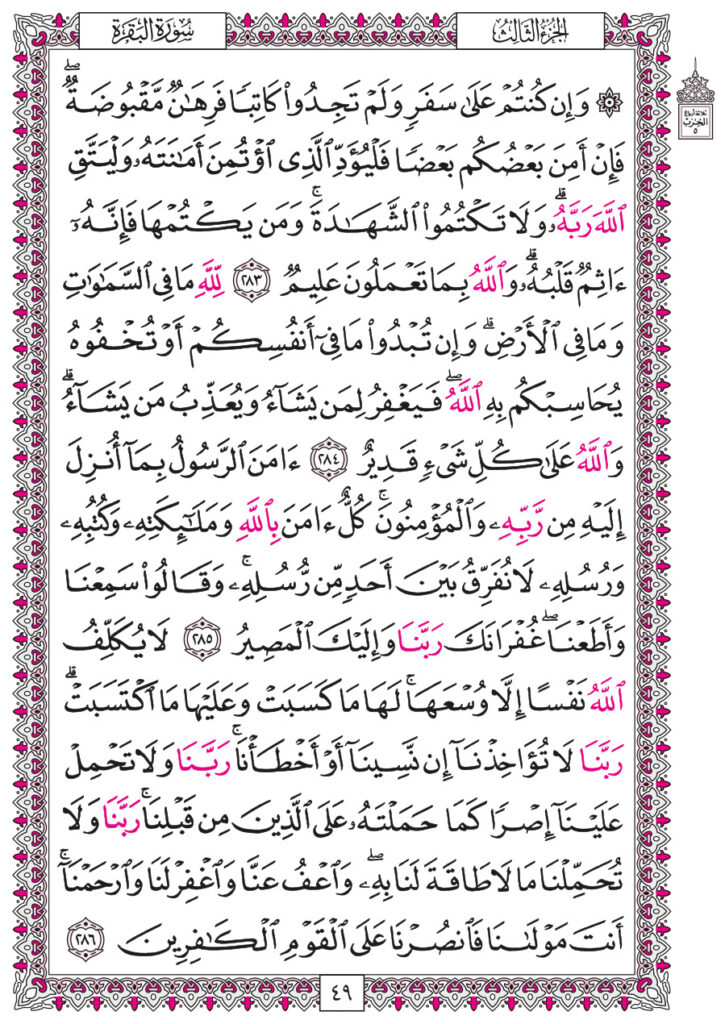 سُورَةُ البَقَرَةِ
الجُزْءُ الثَّالِثُ
۞ وَإِن كُنتُمْ عَلَىٰ سَفَرٍ وَلَمْ تَجِدُوا۟ كَاتِبًا فَرِهَـٰنٌ مَّقْبُوضَةٌ ۖ
فَإِنْ أَمِنَ بَعْضُكُم بَعْضًا فَلْيُؤَدِّ ٱلَّذِى ٱؤْتُمِنَ أَمَـٰنَتَهُۥ وَلْيَتَّقِ
ٱللَّهَ رَبَّهُۥ ۗ وَلَا تَكْتُمُوا۟ ٱلشَّهَـٰدَةَ ۚ وَمَن يَكْتُمْهَا فَإِنَّهُۥٓ
ءَاثِمٌ قَلْبُهُۥ ۗ وَٱللَّهُ بِمَا تَعْمَلُونَ عَلِيمٌ ٢٨٣ لِّلَّهِ مَا فِى ٱلسَّمَـٰوَٰتِ
وَمَا فِى ٱلْأَرْضِ ۗ وَإِن تُبْدُوا۟ مَا فِىٓ أَنفُسِكُمْ أَوْ تُخْفُوهُ
يُحَاسِبْكُم بِهِ ٱللَّهُ ۖ فَيَغْفِرُ لِمَن يَشَآءُ وَيُعَذِّبُ مَن يَشَآءُ ۗ
وَٱللَّهُ عَلَىٰ كُلِّ شَىْءٍ قَدِيرٌ ٢٨٤ ءَامَنَ ٱلرَّسُولُ بِمَآ أُنزِلَ
إِلَيْهِ مِن رَّبِّهِۦ وَٱلْمُؤْمِنُونَ ۚ كُلٌّ ءَامَنَ بِٱللَّهِ وَمَلَـٰٓئِكَتِهِۦ وَكُتُبِهِۦ
وَرُسُلِهِۦ لَا نُفَرِّقُ بَيْنَ أَحَدٍ مِّن رُّسُلِهِۦ ۚ وَقَالُوا۟ سَمِعْنَا
وَأَطَعْنَا ۖ غُفْرَانَكَ رَبَّنَا وَإِلَيْكَ ٱلْمَصِيرُ ٢٨٥ لَا يُكَلِّفُ
ٱللَّهُ نَفْسًا إِلَّا وُسْعَهَا ۚ لَهَا مَا كَسَبَتْ وَعَلَيْهَا مَا ٱكْتَسَبَتْ ۗ
رَبَّنَا لَا تُؤَاخِذْنَآ إِن نَّسِينَآ أَوْ أَخْطَأْنَا ۚ رَبَّنَا وَلَا تَحْمِلْ
عَلَيْنَآ إِصْرًا كَمَا حَمَلْتَهُۥ عَلَى ٱلَّذِينَ مِن قَبْلِنَا ۚ رَبَّنَا وَلَا
تُحَمِّلْنَا مَا لَا طَاقَةَ لَنَا بِهِۦ ۖ وَٱعْفُ عَنَّا وَٱغْفِرْ لَنَا وَٱرْحَمْنَآ ۚ
أَنتَ مَوْلَىٰنَا فَٱنصُرْنَا عَلَى ٱلْقَوْمِ ٱلْكَـٰفِرِينَ ٢٨٦
٤٩